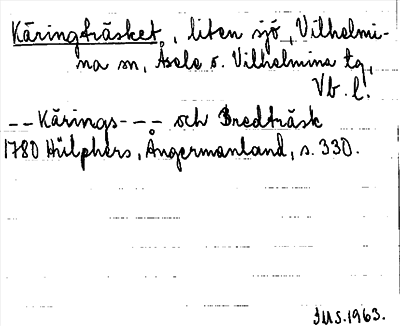 Käringträsket, liten sjö, Vilhelmi-
na sn, Åsele o. Vilhelmina tg,
Vb. l.
-- Kärings- -- och Bredträsk
1780 Hülphers, Ångermanland, s. 330.
IMS. 1963.